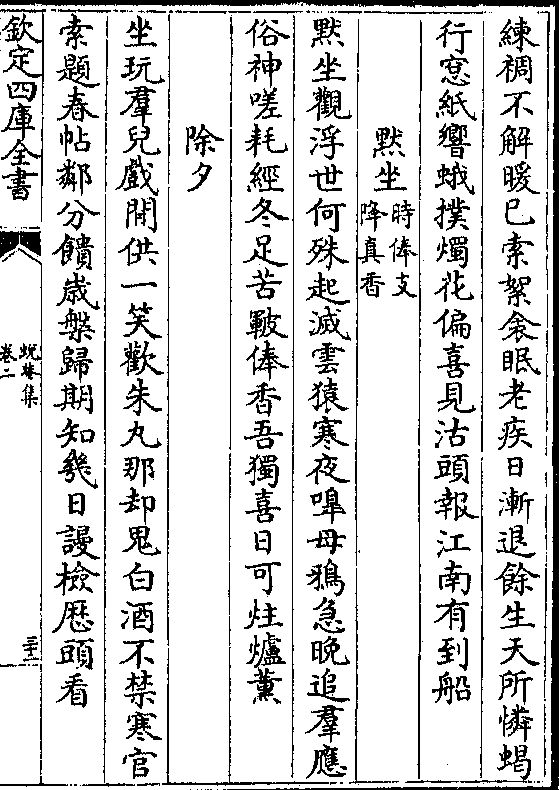 練裯不解暖已索絮衾眠老疾日漸退餘生天所憐蝎
行窓紙響蛾撲燭花偏喜見沽頭報江南有到船
默坐時俸支降真香
默坐觀浮世何殊起滅雲猿寒夜嘷母鴉急晚追羣應
俗神嗟耗經冬足苦皸俸香吾獨喜日可炷爐薰
除夕
坐玩羣兒戲閒供一笑歡朱丸那却鬼白酒不禁寒官
索題春帖鄰分饋嵗槃歸期知幾日謾檢厯頭看
欽定四庫全書
蛻菴集
卷二
三十二